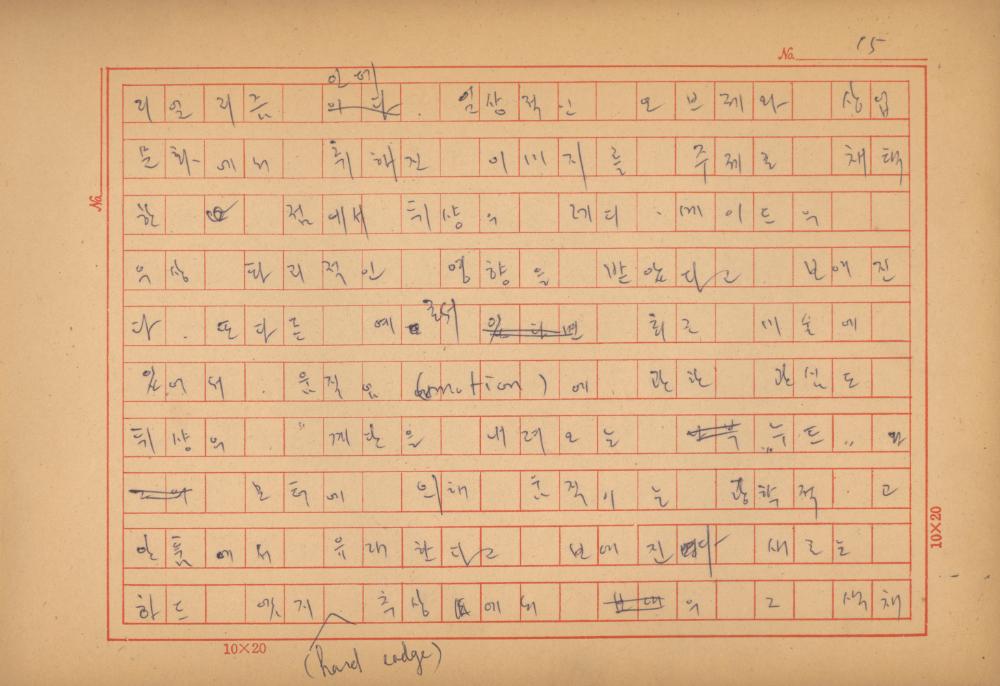 No. 15
리얼리즘 안에. 일상적인 오브제와 상업
문화에서 취해진 이미지를 주제로 채택
한 점에서 뒤샹의 레디·메이드의
우상 파괴적인 영향을 받았다고 보여진
다. 또 다른 예로서 최근 미술에
있어서 움직임(motion)에 관한 관심도
뒤샹의 "계단을 내려오는 누드"와
모터에 의해 움직이는 광학적 고
안품에서 유래한다고 보여진다 새로운
하드 엣지 추상에서의 그 색채
(hard edge)
No.
10×20
10×20